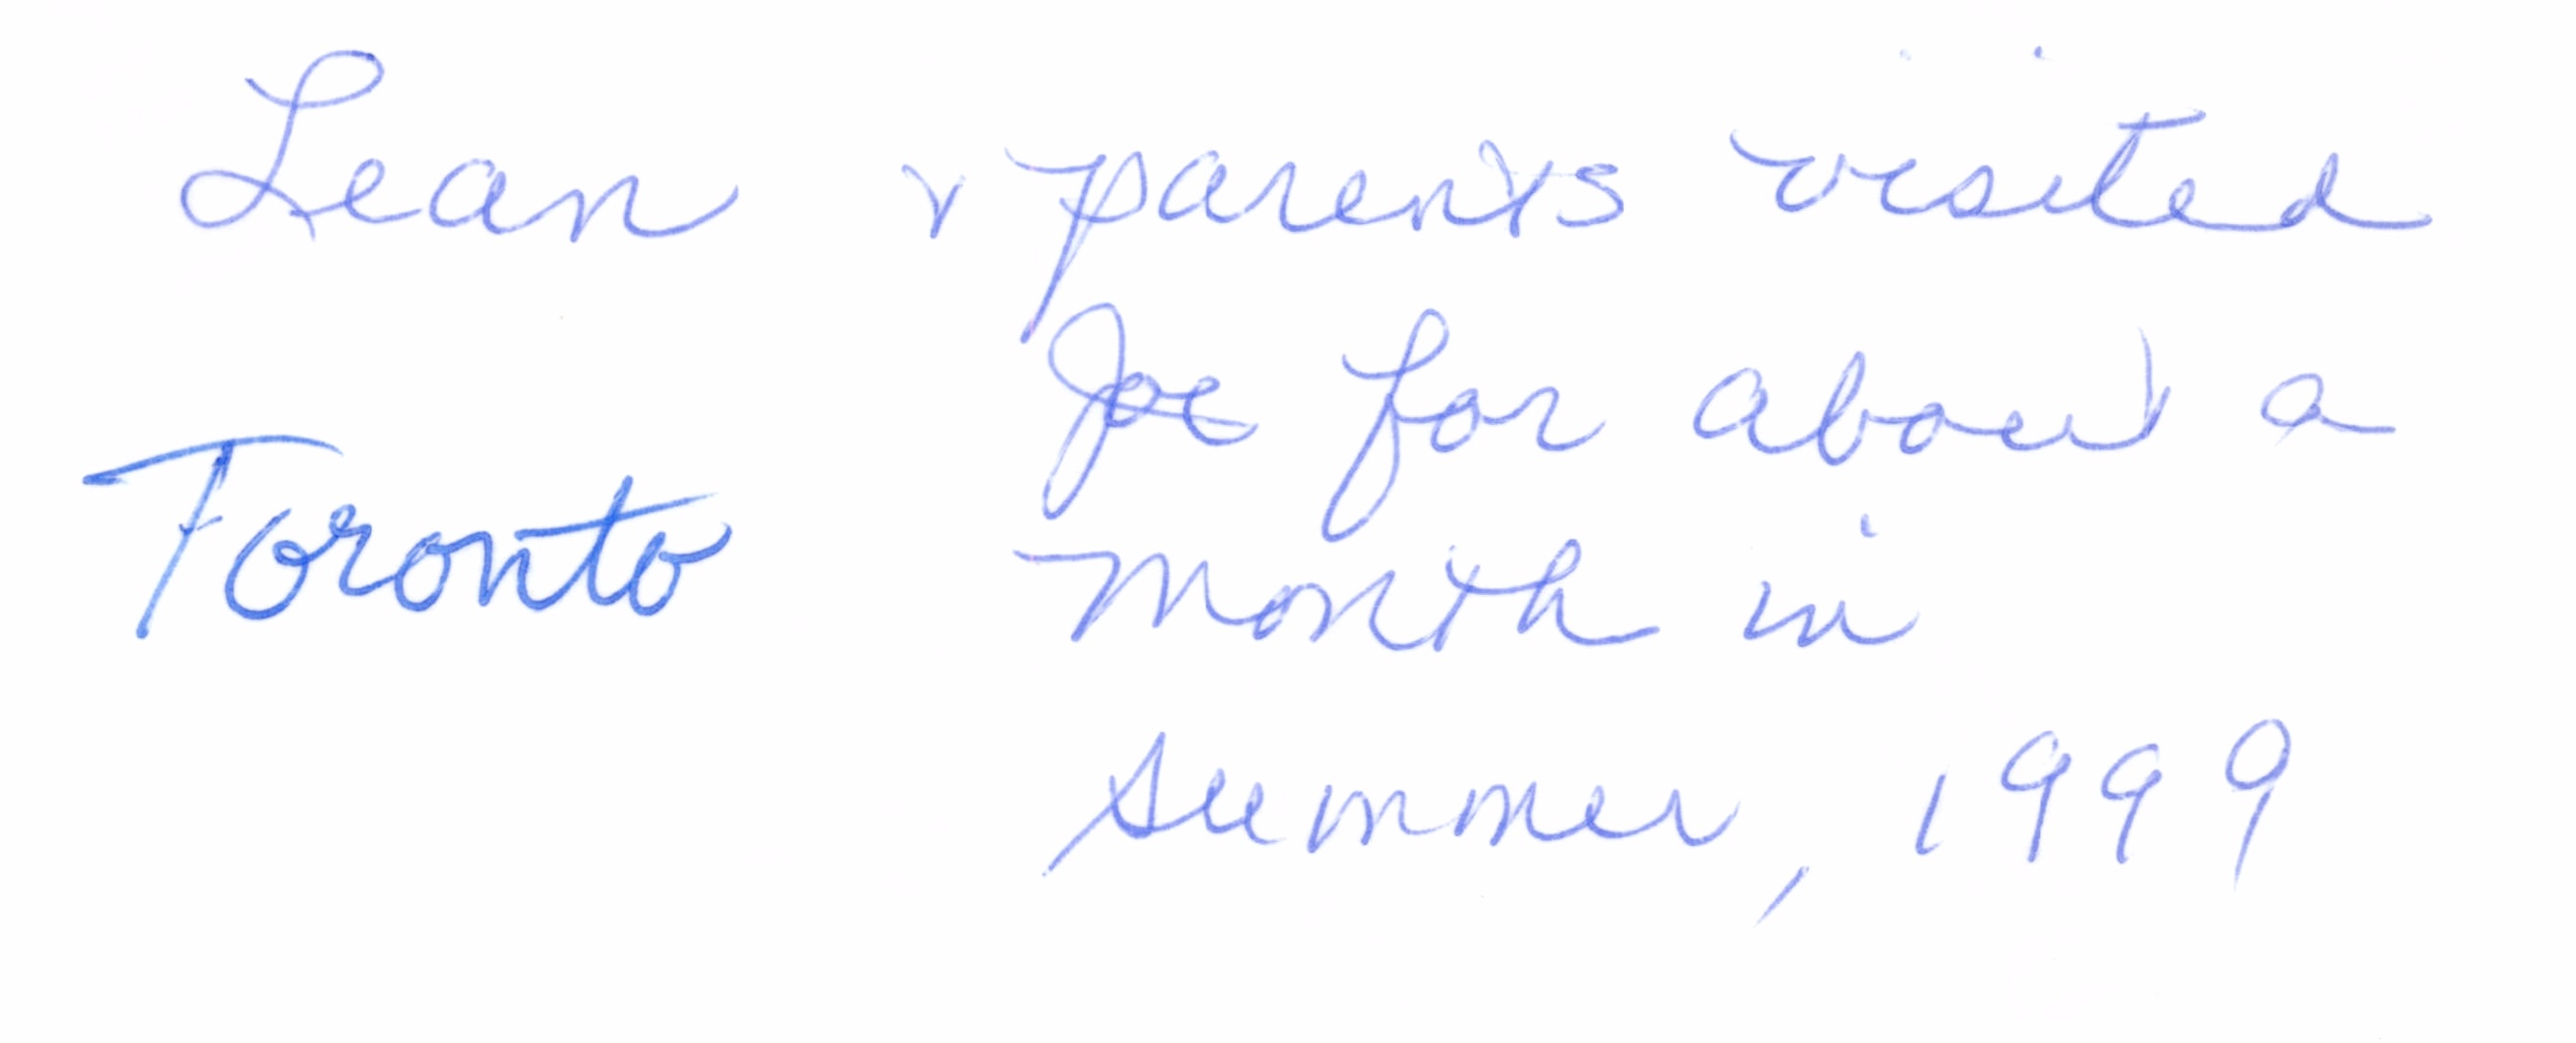 Lean & parents visited
Joe for about a
Toronto
month in
summer, 1999